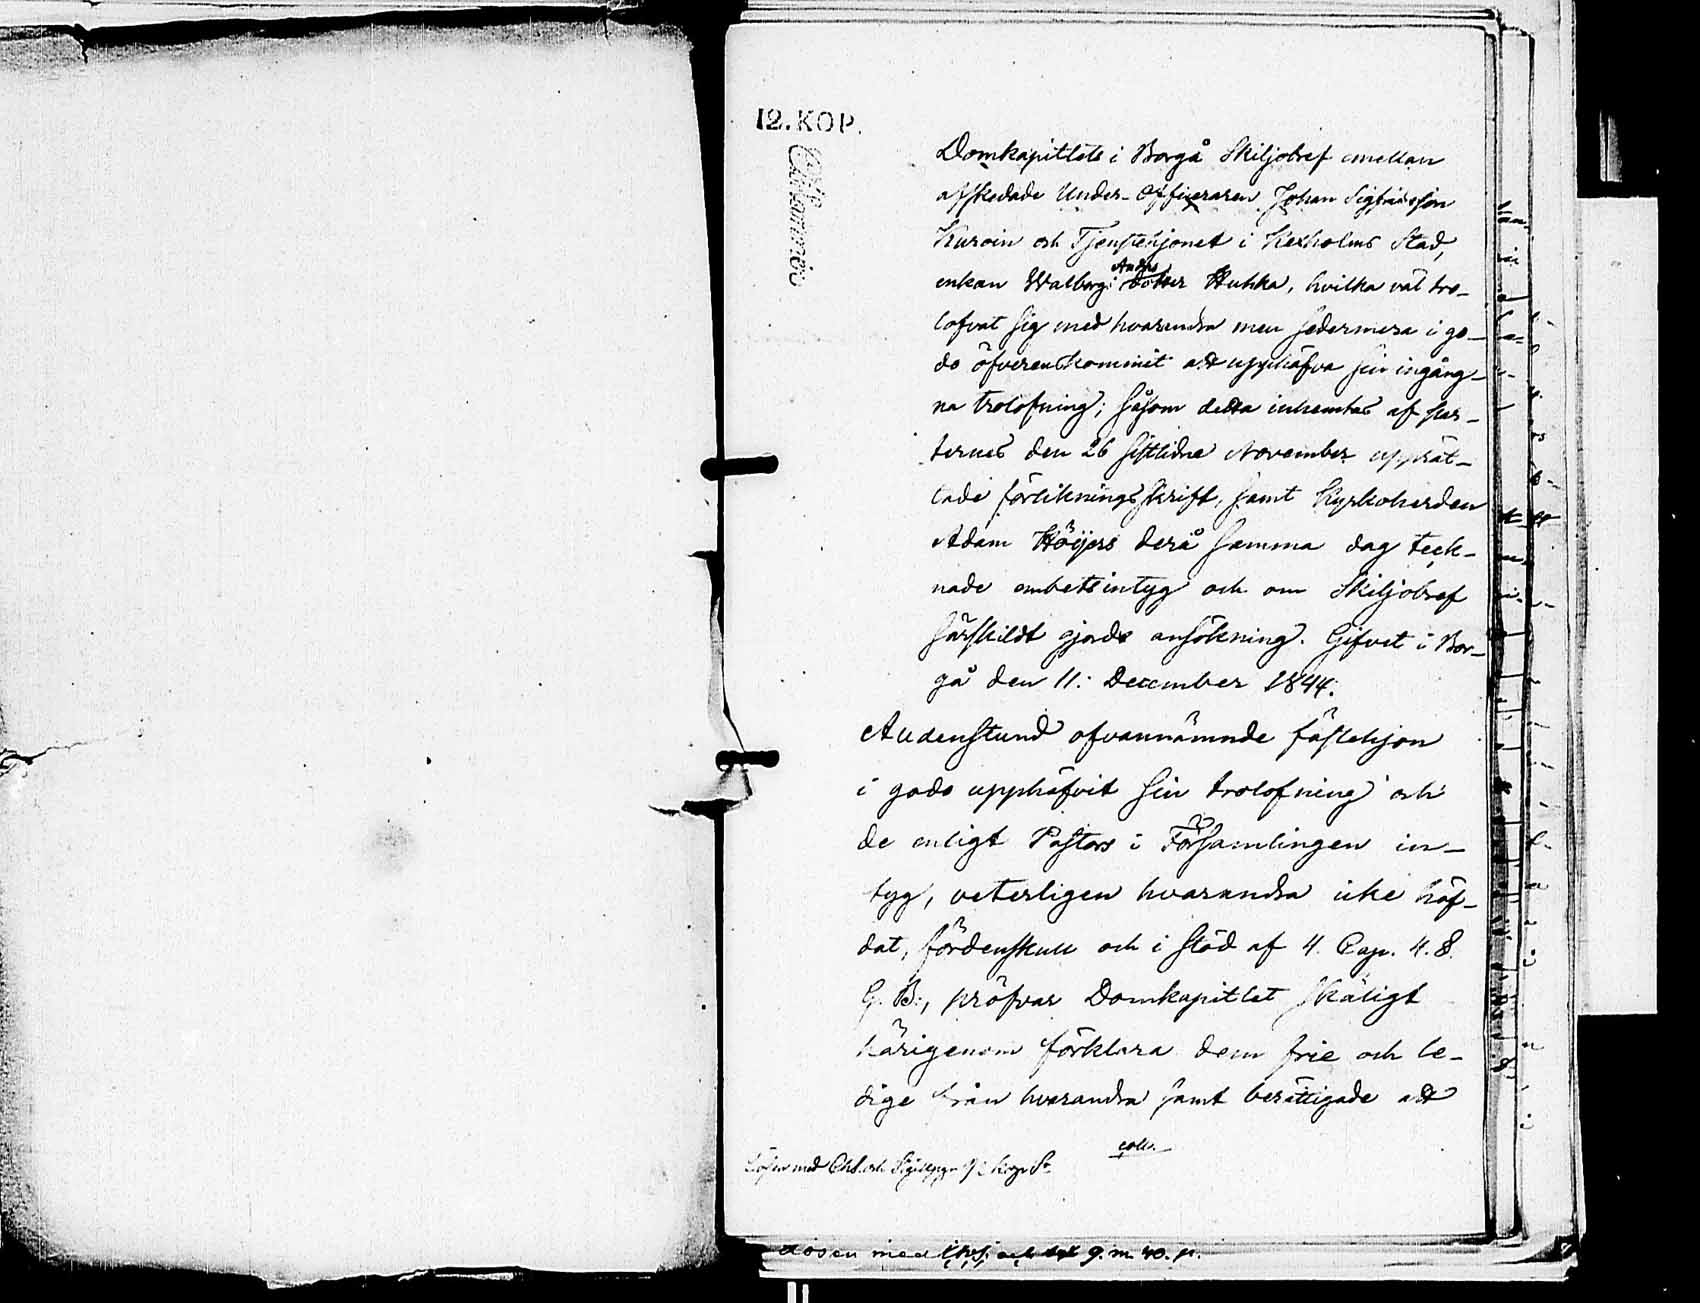 12. KOP.
Domkapitlets i Borgå Skiljobref emellan
afskedade Under-Officeraren Johan Sigfridsson
Kuroin och Tjenstehjonet i Kexholms Stad,
Anders
enkan Walborg dotter Huhka, hvilka väl tro-
lofvat sig med hvarandra men sedermera i go-
do öfverenskommit att upphäfva sin ingång-
na trolofning; såsom detta inhemtas af par-
ternes den 26 sistlidne November upprät-
tade förlikningsskrift, samt Kyrkoherden
Adam Höijers derå samma dag teck-
nade embetsintyg och om Skiljobref
särskildt gjorde ansökning. Gifvet i Bor-
gå den 11: December 1844.
Audenstund ofvannämnde fästehjon
i godo upphäfvit sin trolofning och
de enligt Pastors i Församlingen in-
tyg, veterligen hvarandra icke häf-
dat, fördenskull och i stöd af 4. Cap. 4. §.
G. B., pröfvar Domkapitlet skäligt
härigenom förklara dem frie och le-
dige från hvarandra samt berättigade att
coll.
Lösen med Chs. och
Lösen med Chs. och 9. m 40. p.